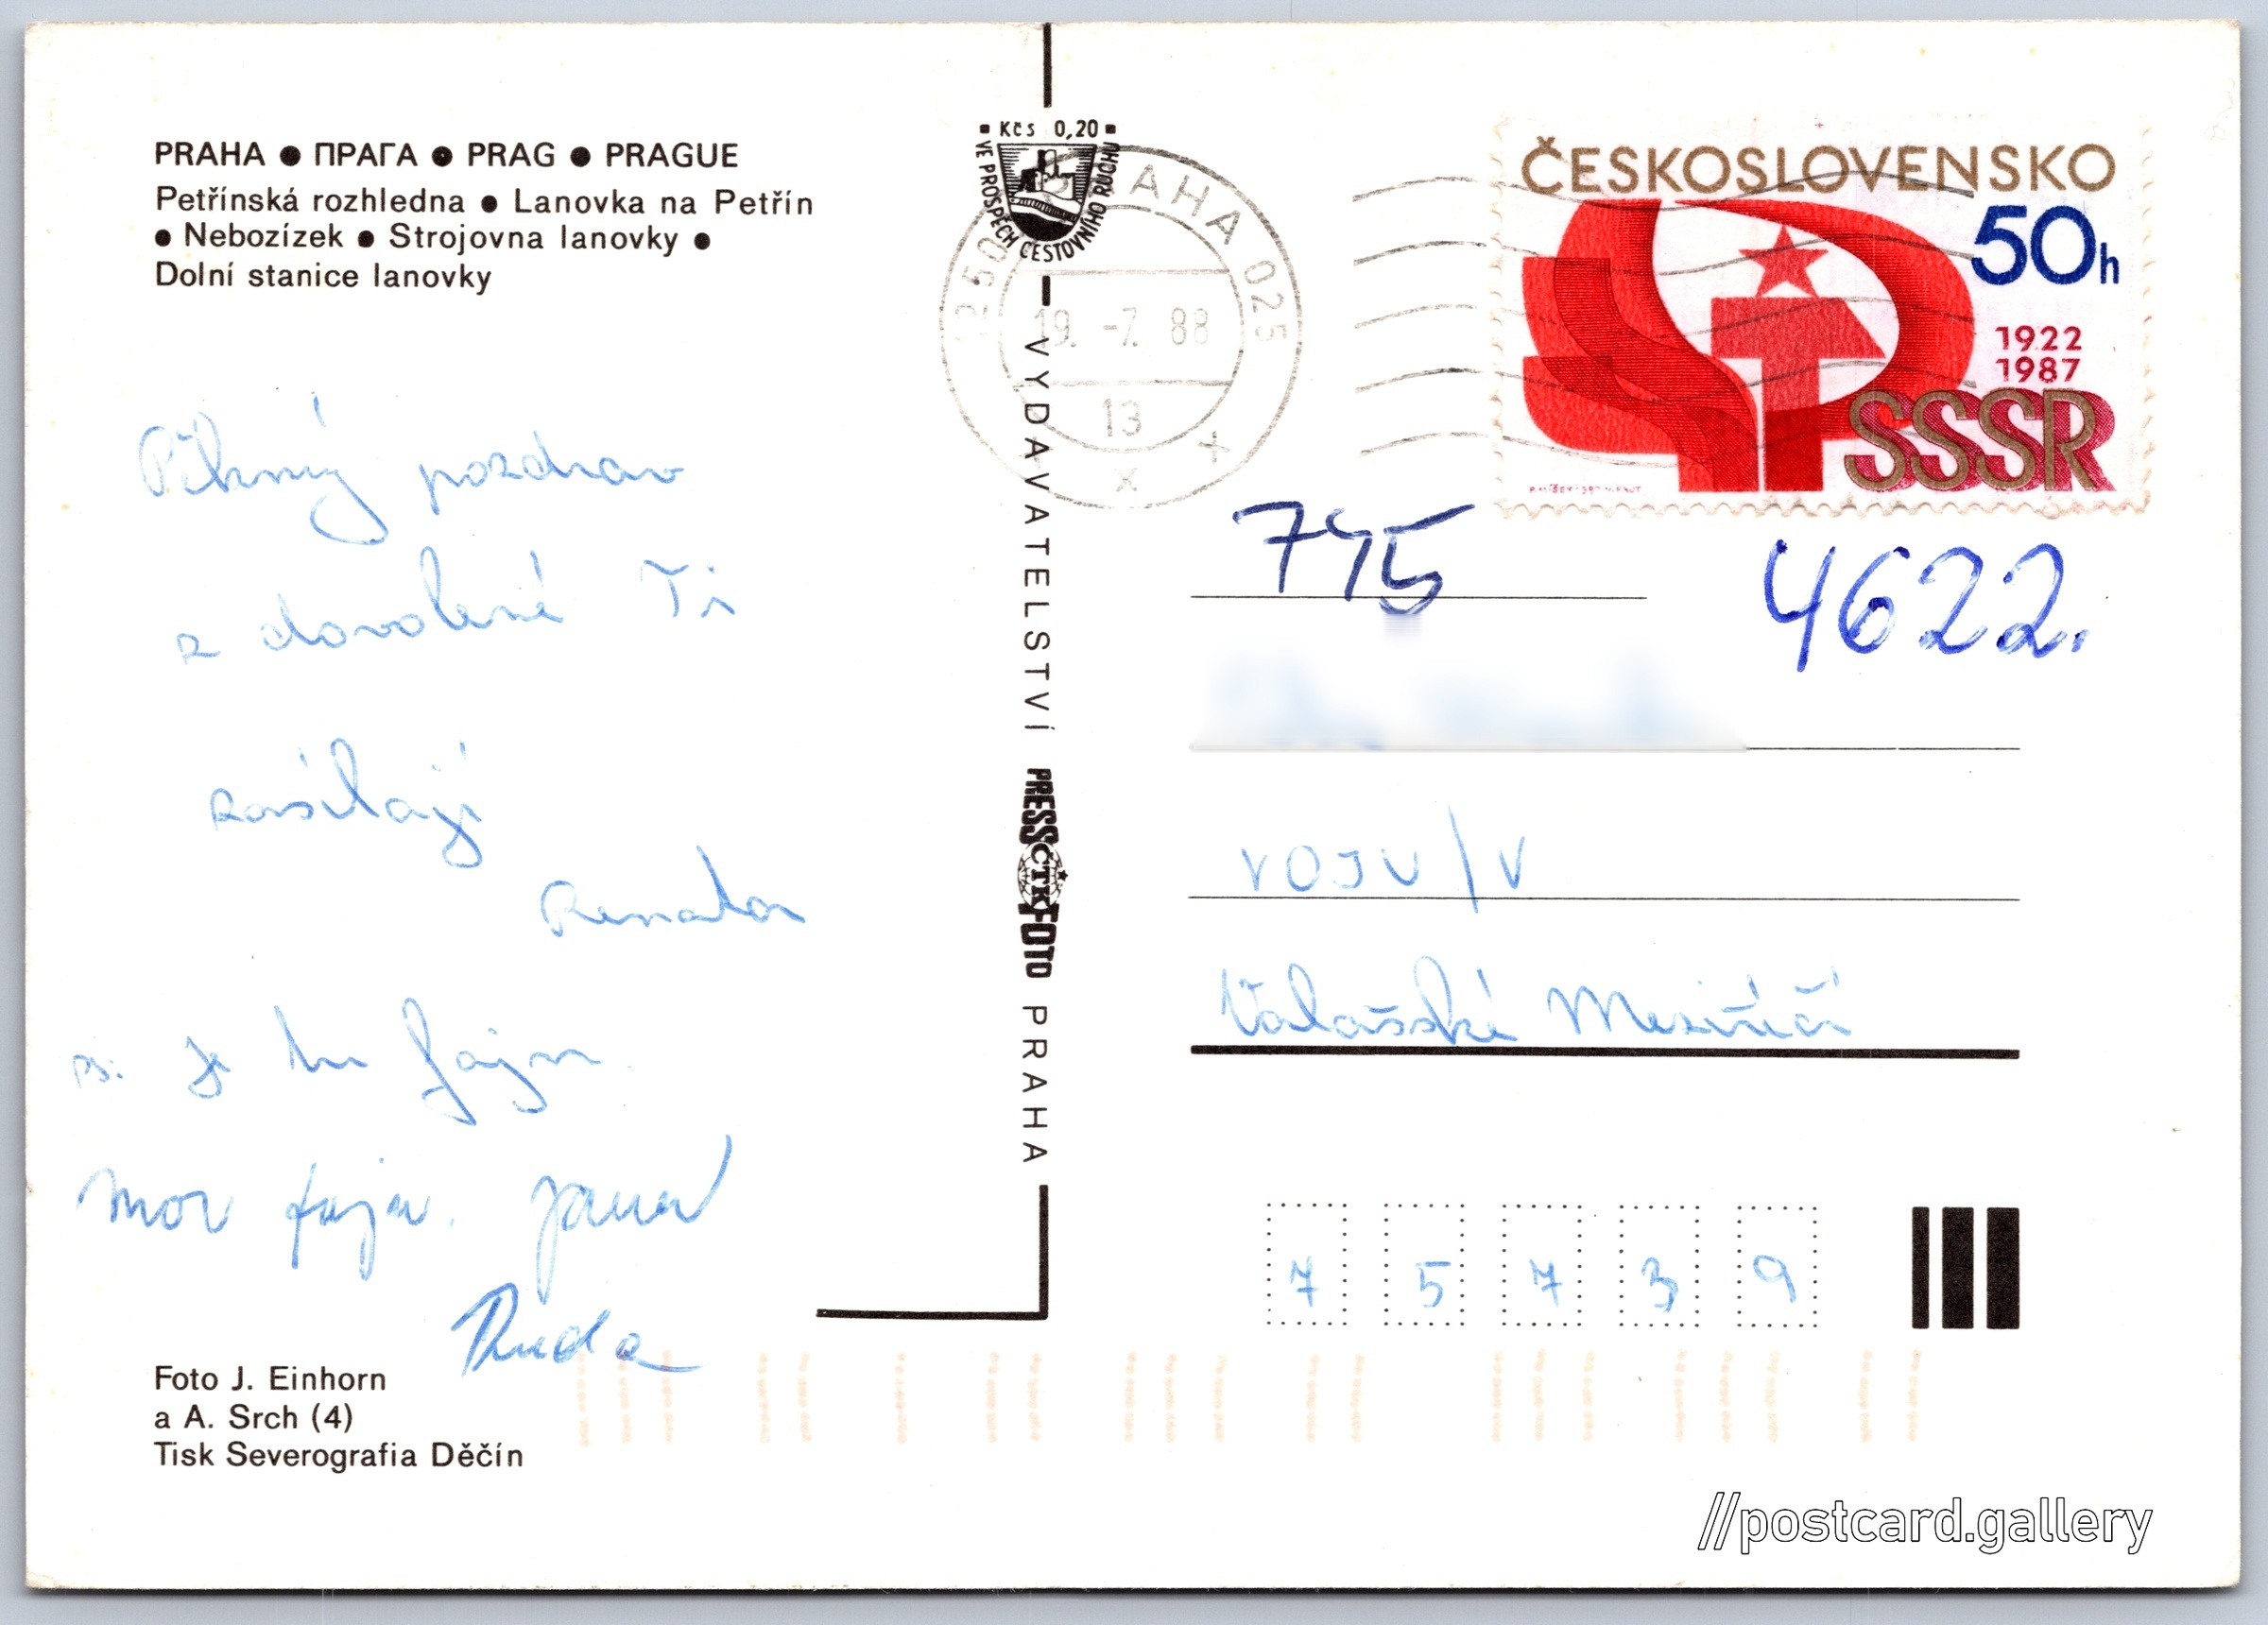 PRAHA ● ПРАГА ● PRAG ● PRAGUE
Petřínská rozhledna ● Lanovka na Petřín
● Nebozízek ● Strojovna lanovky ●
Dolní stanice lanovky
Pěkný pozdrav
z dovolené Ti
zasílají
Renata
Ps. Je tu fajn
moc fajn. Jana
Ruda
Foto J. Einhorn
a A. Srch (4)
Tisk Severografia Děčín
Kčs 0,20
VE PROSPĚCH CESTOVNÍHO RUCHU
PRAHA 025
19. -7. 88
13
VYDAVATELSTVÍ PRESSFOTO PRAHA
ČTK
ČESKOSLOVENSKO
50h
1922
1987
SSSR
745
4622.
VOJV/V
Valašské Meziříčí
7 5 7 3 9
//postcard.gallery